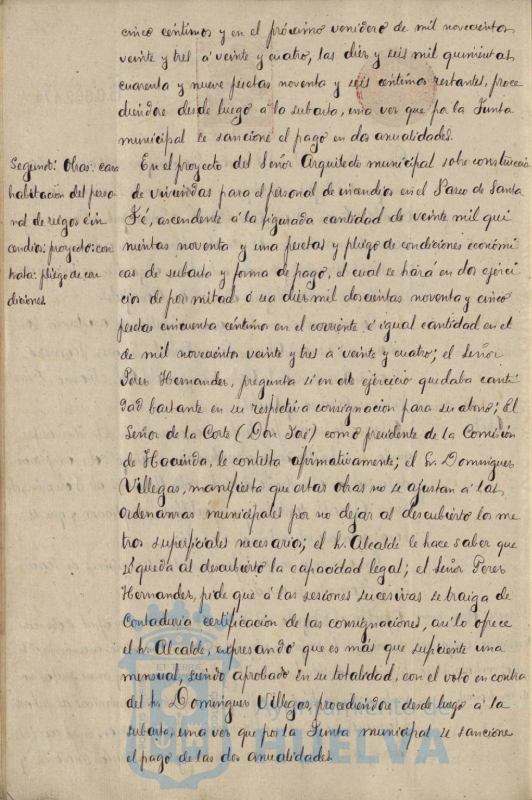 cinco céntimos y en el próximo venidero de mil novecientos
veinte y tres á veinte y cuatro, las diez y seis mil quinientas
cuarenta y nueve pesetas noventa y seis centimos restantes, proce
diendose desde luego á la subasta, una vez que por la Junta
municipal se sancione el pago en dos anualidades.
Segunda: Obras: casa
habitación del perso-
nal de riegos é in
cendios; proyecto: con
trata: pliego de con
diciones
En el proyecto del Señor Arquitecto municipal sobre construccion
de viviendas para el personal de incendios en el Paseo de Santa
Fé, ascendente á la figurada cantidad de veinte mil qui
nientas noventa y una pesetas y pliego de condiciones económi
cas de subasta y forma de pago, el cual se hará en dos ejerci
cios de por mitad ó sea diez mil doscientas noventa y cinco
pesetas cincuenta céntimos en el corriente é igual cantidad en el
de mil novecientos veinte y tres á veinte y cuatro; el señor
Perez Hernandez, pregunta si en este ejercicio quedaba canti
dad bastante en su respectiva consignacion para su abono; El
Señor de la Corte (Don José) como presidente de la Comisión
de Hacienda, le contesta afirmativamente; el Sr. Dominguez
Villegas, manifiesta que estas obras no se ajustan á las
ordenanzas municipales por no dejar al descubierto los me
tros superficiales necesarios; el Sr. Alcalde le hace saber que
si queda al descubierto la capacidad legal; el señor Perez
Hernandez, pide que á las sesiones sucesivas se traiga de
Contaduria certificación de las consignaciones, asi lo ofrece
el Sr. Alcalde, expresando que es más que suficiente una
mensual, siendo aprobado en su totalidad, con el voto en contra
del Sr. Dominguez Villegas, procediendose desde luego á la
subasta, una vez que por la Junta municipal se sancione
el pago de las dos anualidades.
Ayuntamiento de
HUELVA